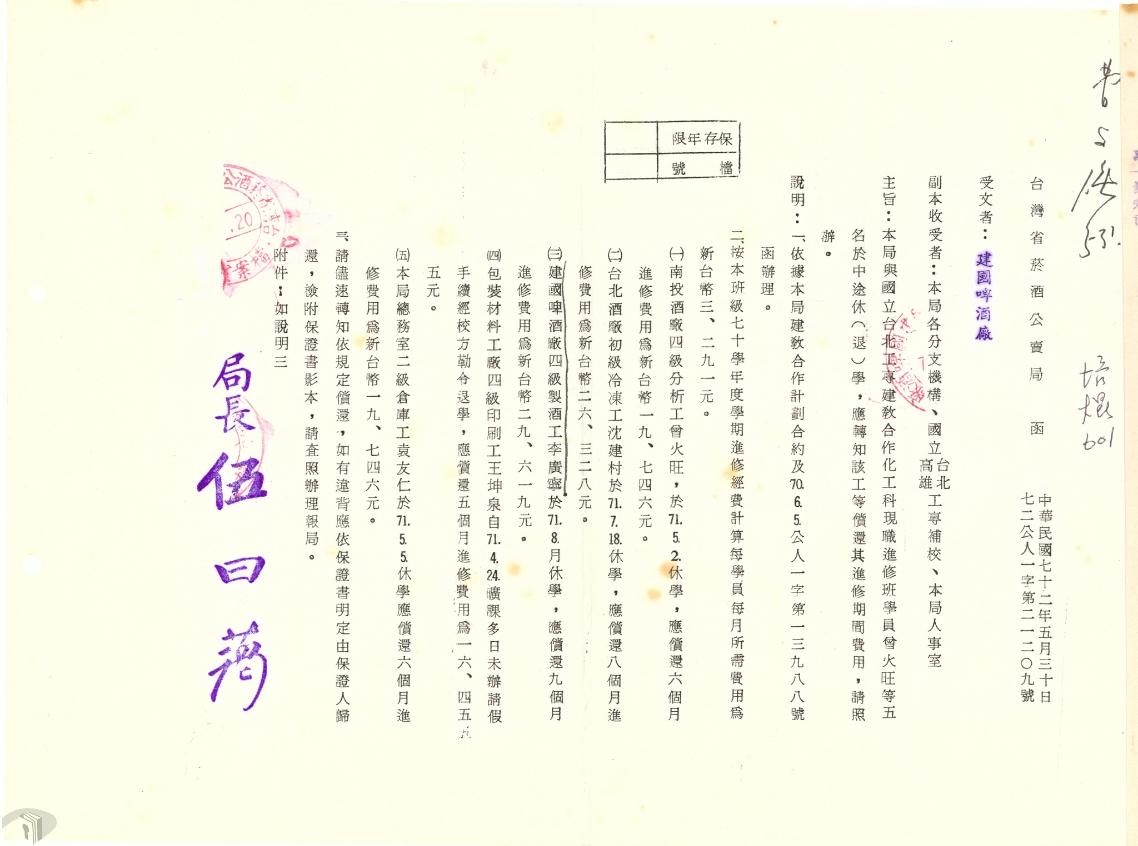 保存年限
檔號
台灣省菸酒公賣局 函
中華民國七十二年五月三十日
七二公人一字第二一二〇九號
受文者：建國啤酒廠
副本收受者：本局各分支機構、國立台北高雄工專補校、本局人事室
主旨：本局與國立台北工專建教合作化工科現職進修班學員曾火旺等五
名於中途休（退）學，應轉知該工等償還其進修期間費用，請照
辦。
說明：一、依據本局建教合作計劃合約及70.6.5.公人一字第一三九八八號
函辦理。
二、按本班級七十學年度學期進修經費計算每學員每月所需費用為
新台幣三、二九一元。
㈠南投酒廠四級分析工曾火旺，於71.5.2.休學，應償還六個月
進修費用為新台幣一九、七四六元。
㈡台北酒廠初級冷凍工沈建村於71.7.18.休學，應償還八個月進
修費用為新台幣二六、三二八元。
㈢建國啤酒廠四級製酒工李廣寧於71.8.月休學，應償還九個月
進修費用為新台幣二九、六一九元。
㈣包裝材料工廠四級印刷工王坤泉自71.4.24.曠課多日未辦請假
手續經校方勒令退學，應償還五個月進修費用為一六、四五
五元。
㈤本局總務室二級倉庫工袁友仁於71.5.5.休學應償還六個月進
修費用為新台幣一九、七四六元。
三、請儘速轉知依規定償還，如有違背應依保證書明定由保證人歸
還，檢附保證書影本，請查照辦理報局。
附件：如說明三
局長 伍
20
601